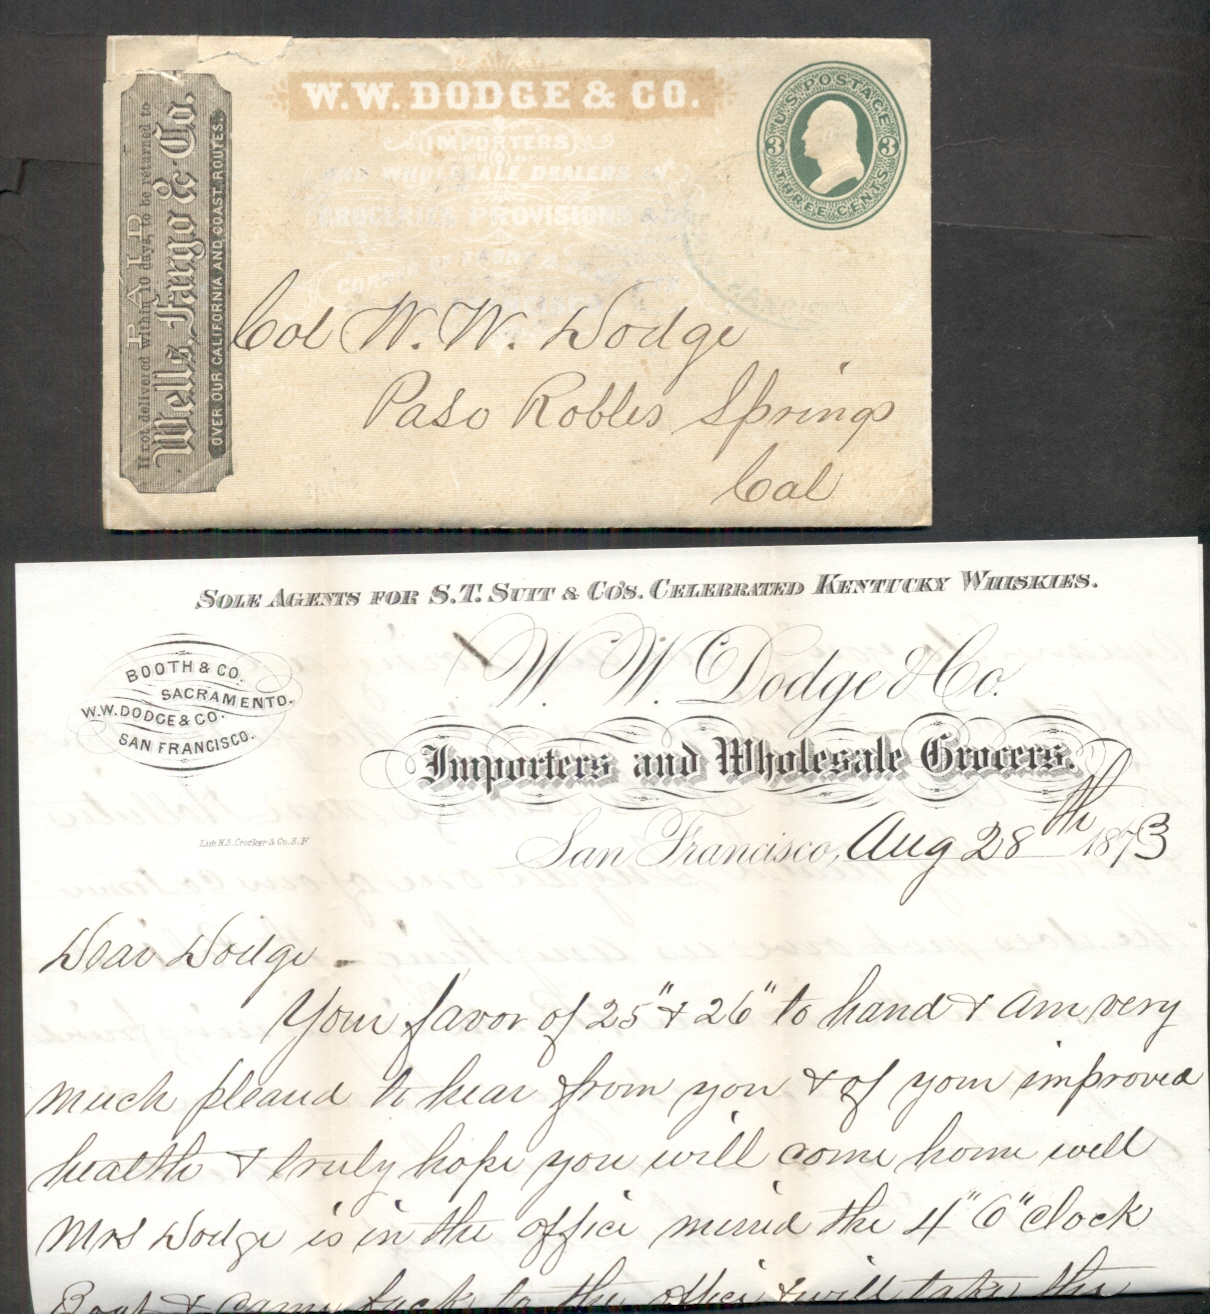 W.W. DODGE & CO.
IMPORTERS
AND WHOLESALE DEALERS IN
GROCERIES PROVISIONS
U.S. POSTAGE
3 3
THREE CENTS
PAID
If not delivered within 10 days, to be returned to
Wells, Fargo & Co.
OVER OUR CALIFORNIA AND COAST ROUTES.
Col W. W. Dodge
Paso Robles Springs
Cal
SOLE AGENTS FOR S.T. SUIT & CO'S. CELEBRATED KENTUCKY WHISKIES.
BOOTH & CO.
SACRAMENTO.
W.W. DODGE & CO.
SAN FRANCISCO.
W. W. Dodge & Co.
Importers and Wholesale Grocers.
Lith H.S. Crocker & Co. S.F
San Francisco, Aug 28th 1873
Dear Dodge
Your favor of 25" & 26" to hand & am very
much pleasd to hear from you & of your improved
health & truly hope you will come home well
Mrs Dodge is in the office missd the 4 "O"clock
Boat & came back to the office & will take the